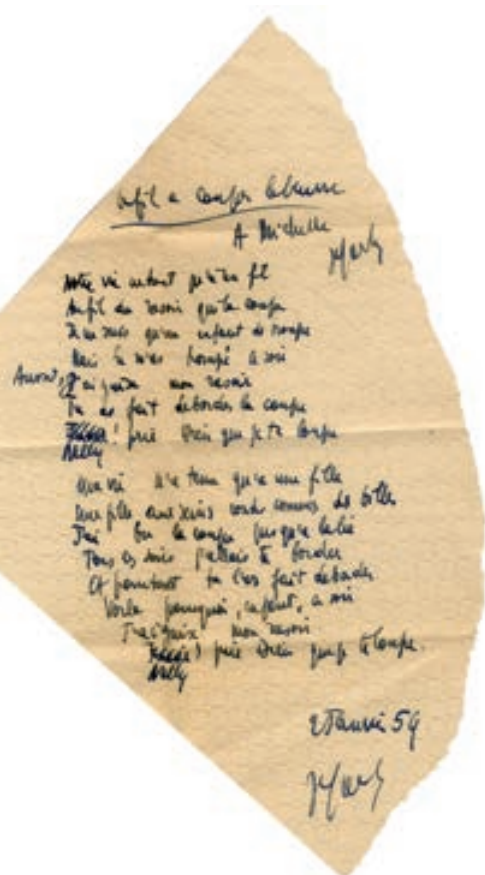 Le fil a couper le beurre
A Michelle
notre vie ne tient qu'à un fil
Au fil du rasoir qui le coupe
Je ne suis qu'un enfant de troupe
Mais tu m'as trompé ce soir
Amour, j'aiguise mon rasoir
Tu as fait déborder la coupe
Nelly! prie Dieu que je te loupe
Ma vie n'a tenu qu'à une fille
Une fille aux seins ronds comme des billes
J'ai bu la coupe jusqu'à la lie
Tous les soirs j'allais te border
Et pourtant tu l'as fait déborder
Voilà pourquoi, enfant, ce soir
J'aiguise mon rasoir
Nelly! prie Dieu que je te loupe.
2 Janvier 59